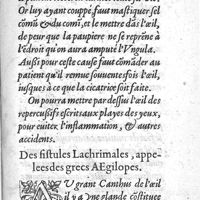 Or luy ayant couppé, faut mastiquer sel
cõmũ & du comĩ, et le mettre dãs l'œil,
de peur que la paupiere ne se reprẽne à
l'ẽdroit qu'on aura amputé l'Vngula.
Aussi pour ceste cause faut cõmãder au
patient qu'il remue souvente fois l'œil,
iusques à ce que la cicatrice soit faite.
On pourra mettre par dessiu l'œil des
repercussifs escrits aux playes des yeux,
pour euiter l'inflammation, & autres
accidents.
Des fistules Lachrimales, appe-
lees des grecs AEgilopes.
AV grant Canthus de l'œil
il y a vne glande cõstituee